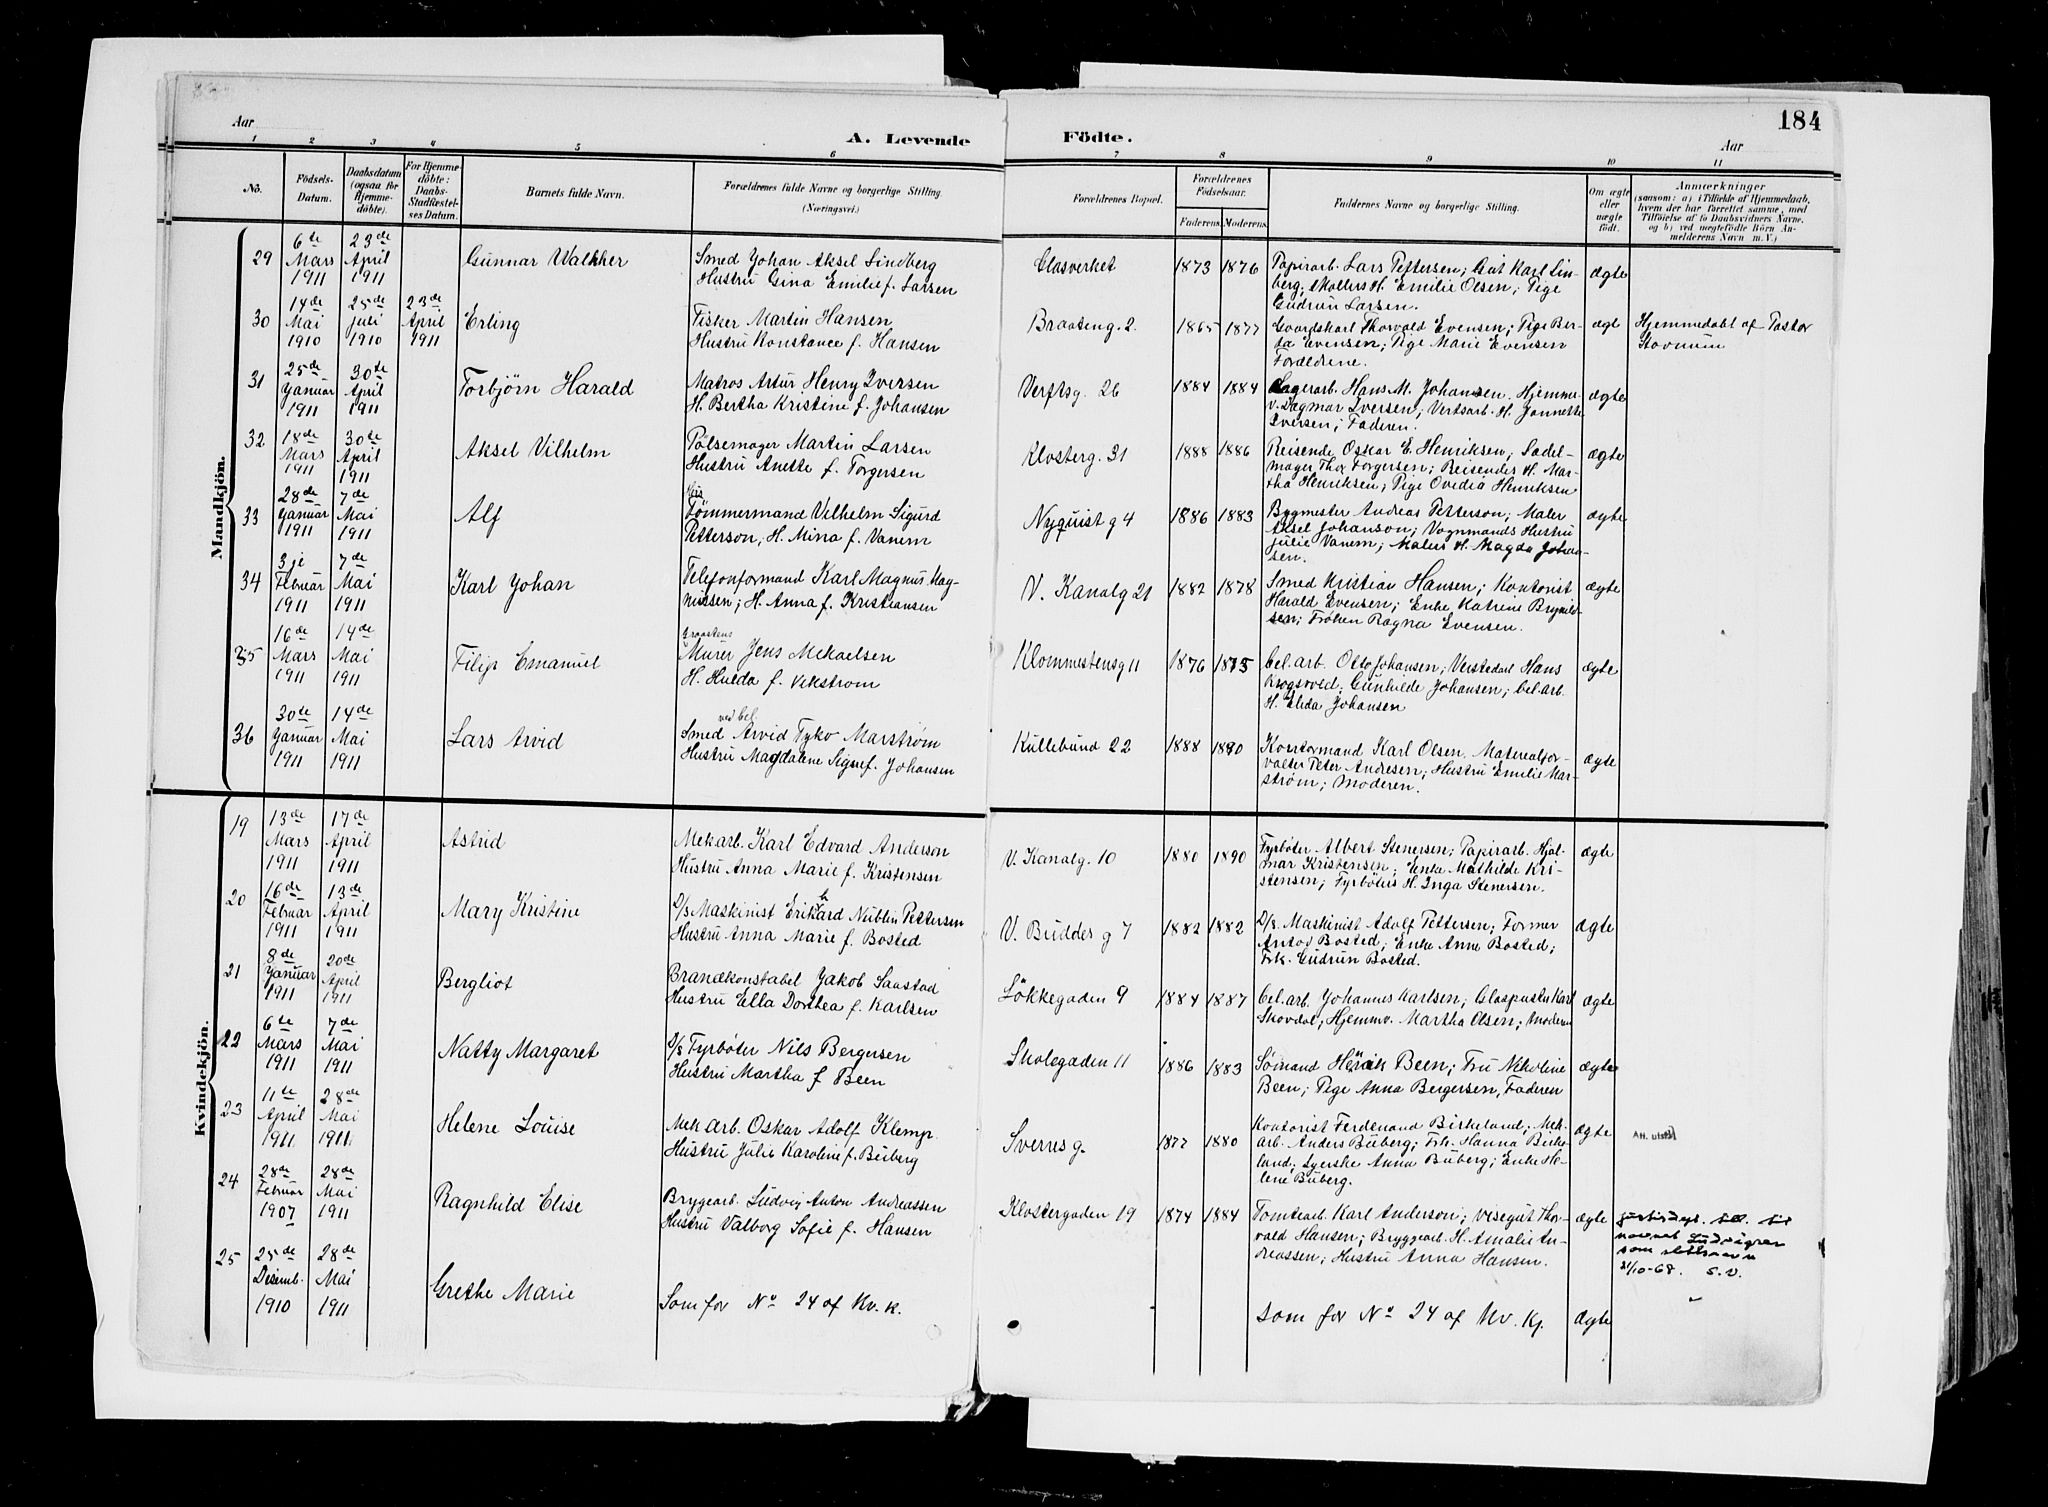 184
Aar
A. Levende Födte.
Aar
1 2 3 4 5 6 7 8 9 10 11
No.
Födsels-Datum.
Daabsdatum (ogsaa for Hjemmedöbte).
For Hjemmedöbte: Daabs-Stadfæstelses Datum.
Barnets fulde Navn.
Forældrenes fulde Navne og borgerlige Stilling. (Næringsvei.)
Forældrenes Bopæl.
Forældrenes Födselsaar.
Faderens. Moderens.
Faddernes Navne og borgerlige Stilling.
Om ægte eller uægte födt.
Anmærkninger
(saasom: a) i Tilfælde af Hjemmedaab, hvem der har forrettet samme, med Tilföielse af to Daabsvidners Navne, og b) ved uægtefödte Börn Anmelderens Navn m. V.)
Mandkjön.
29 6te Mars 1911 23de April 1911 Gunnar Walther
Smed Johan Aksel Lindberg
Hustru Gina Emilie f. Larsen
Glasverket 1873 1876
Papirarb. Lars Pettersen; Gut Karl Lin-
berg; Møllers H. Emilie Olsen; Pige
Gudrun Larsen.
ægte
30 14de Mai 1910 25de Juli 1910 23de April 1911 Erling
Fisker Martin Hansen
Hustru Konstance f. Hansen
Braateng. 2. 1865 1877
Gaardskarl Thorvald Evensen; Pige Ber-
ta Evensen; Pige Marie Evensen
Forældrene.
ægte
Hjemmedøbt af Pastor
31 25de Januar 1911 30te April 1911 Torbjörn Harald
Matros Artur Henry Iversen
H. Bertha Kristine f. Johansen
Verftsg. 26 1884 1884
Lagerarb. Hans M. Johansen. Hjemme-
v. Dagmar Iversen; Verksarb. H. Jannette
Iversen; Faderen.
ægte
32 18de Mars 1911 30te April 1911 Aksel Vilhelm
Pølsemager Martin Larsen
Hustru Anette f. Torgersen
Klosterg. 31 1888 1886
Reisende Oskar E. Henriksen; Sadel-
mager Thor Torgersen; Reisendes H. Mar-
tha Henriksen; Pige Ovedia Henriksen
ægte
33 28de Januar 1911 7de Mai 1911 Alf
Tömmermand Vilhelm Sigurd
Petterson; H. Mina f. Vanem
Nyquist g 4 1886 1883
Bygmester Andreas Petterson; Maler
Aksel Johanson; Vognmands Hustru
Julie Vanem; Malers H. Magda Johan-
sen.
ægte
34 3je Februar 1911 7de Mai 1911 Karl Johan
Telefonformand Karl Magnus Mag-
nussen; H. Anna f. Kristiansen
V. Kanalg 21 1882 1878
Smed Kristian Hansen; Kontorist
Harald Evensen; Enke Katrine Brynild-
sen; Frøken Ragna Evensen.
ægte
35 16de Mars 1911 14de Mai 1911 Filip Emanuel
Graastens
Murer Jens Mekaelsen
H. Hulda f. Vikstrom
Klommestensg 11 1876 1875
Cel. arb. Otto Johansen; Verkstedarb Hans
Krogsvold; Gunhilde Johansen; Cel. arb.
H. Elida Johansen
ægte
36 30te Januar 1911 14de Mai 1911 Lars Arvid
ved Cel.
Smed Arvid Tyko Marstrøm
Hustru Magdalene Signe f. Johansen
Kullebund 22 1888 1890
Kontormand Karl Olsen. Materealfor-
valter Peter Andresen; Hustru Emilie Mar-
strøm; Moderen.
ægte
Kvindekjön.
19 13de Mars 1911 17de April 1911 Astrid
Mekarb. Karl Edvard Anderson
Hustru Anna Marie f. Kristensen
V. Kanalg. 10 1880 1890
Fyrbøter Albert Stenersen; Papirarb. Hjal-
mar Kristensen; Enke Mathilde Kri-
stensen; Fyrbøters H. Inga Stenersen.
ægte
20 16de Februar 1911 13de April 1911 Mary Kristine
D/s Maskinist Erikard Nublin Pettersen
Hustru Anna Marie f. Bosted
V. Buddes g 7 1882 1882
D/s. Maskinist Adolf Pettersen; Former
Anton Bosted; Enke Anne Bosted;
Frk. Gudrun Bosted.
ægte
21 8de Januar 1911 20de April 1911 Bergliot
Brandkonstabel Jakob Saastad
Hustru Ella Dorthea f. Karlsen
Løkkegaden 9 1884 1887
Cel. arb. Johannes Karlsen; Glaspuster Karl
Skovdal; Hjemmv. Martha Olsen; Moderen
ægte
22 6te Mars 1911 7de Mai 1911 Natty Margaret
D/s Fyrbøter Nils Bergersen
Hustru Martha f Been
Skolegaden 11 1886 1883
Sømand Henrik Been; Fru Nikoline
Been; Pige Anna Bergersen, Faderen
ægte
23 11te April 1911 28de Mai 1911 Helene Louise
Mek arb. Oskar Adolf Klemp.
Hustru Julie Karoline f. Buberg
Sverres g. 1877 1880
Kontorist Ferdenand Birkeland; Mek-
arb. Anders Buberg; Frk. Hanna Birke-
land; Syerske Anna Buberg; Enke He-
lene Buberg.
ægte
24 28de Februar 1907 28de Mai 1911 Ragnhild Elise
Bryggearb. Ludvig Anton Andreassen
Hustru Valborg Sofie f. Hansen
Klostergaden 19 1874 1884
Tomtearb. Karl Anderson; Visegut Thor-
vald Hansen; Bryggearb. H. Amalie An-
dreassen; Hustru Anna Hansen.
ægte
Justisdept. till. til
navnet Ludvigsen
som slektsnavn
31/10-68. S.V.
25 25de Desemb. 1910 28de Mai 1911 Grethe Marie
Som for No 24 af Kv. k.
som for No 24 af Kv. Kj.
ægte